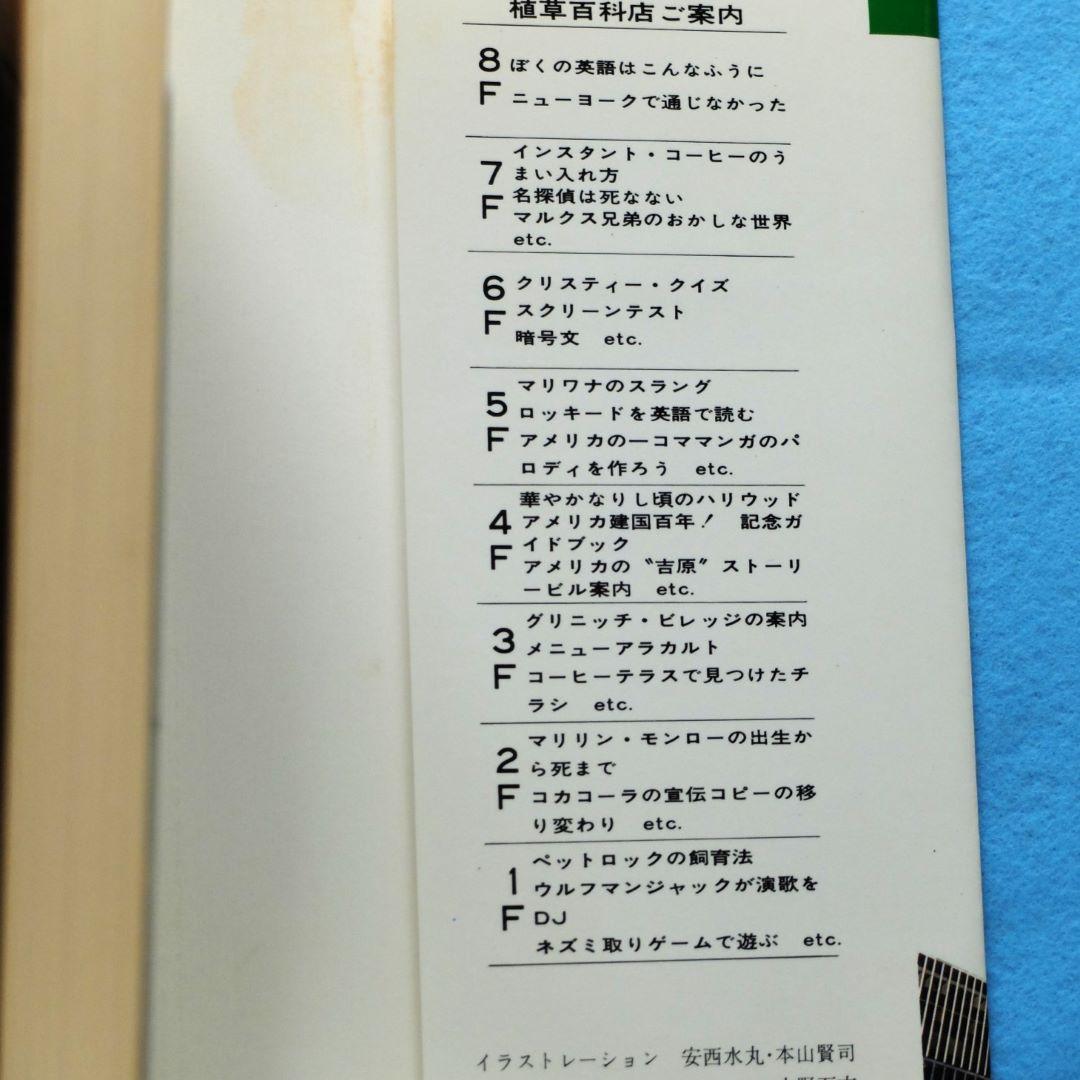 植草百科店ご案内
8F
ぼくの英語はこんなふうに
ニューヨークで通じなかった
7F
インスタント・コーヒーのう
まい入れ方
名探偵は死なない
マルクス兄弟のおかしな世界
etc.
6F
クリスティー・クイズ
スクリーンテスト
暗号文 etc.
5F
マリワナのスラング
ロッキードを英語で読む
アメリカの一コママンガのパ
ロディを作ろう etc.
4F
華やかなりし頃のハリウッド
アメリカ建国百年! 記念ガ
イドブック
アメリカの〝吉原〞ストーリ
ービル案内 etc.
3F
グリニッチ・ビレッジの案内
メニューアラカルト
コーヒーテラスで見つけたチ
ラシ etc.
2F
マリリン・モンローの出生か
ら死まで
コカコーラの宣伝コピーの移
り変わり etc.
1F
ペットロックの飼育法
ウルフマンジャックが演歌を
DJ
ネズミ取りゲームで遊ぶ etc.
イラストレーション 安西水丸・本山賢司